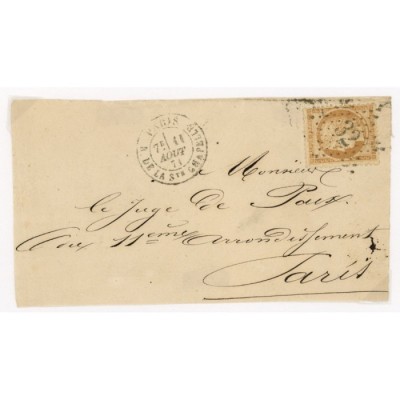 PARIS
R. DE LA Ste CHAPELLE
7E 11
AOUT
71
à Monsieur
le Juge de Paix
du 11ème arrondissement
Paris